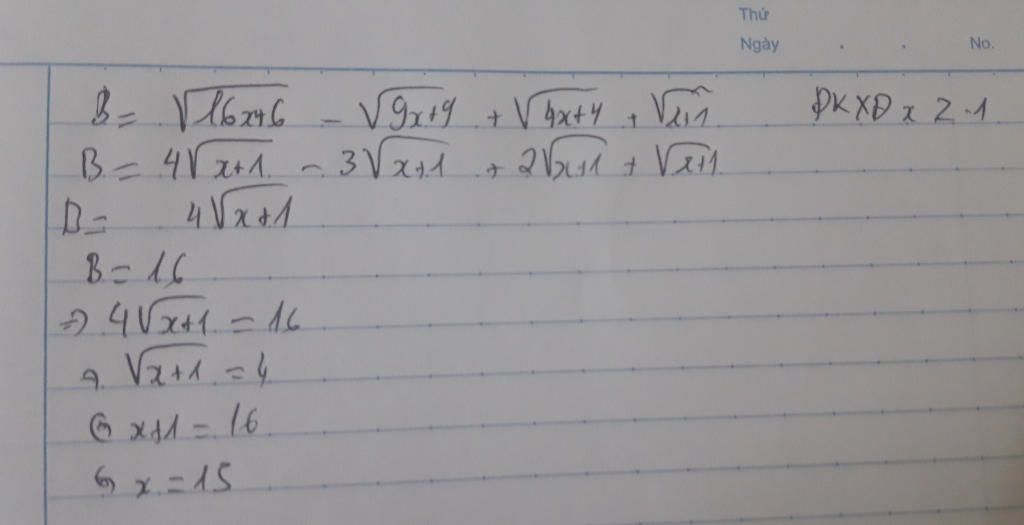 Thứ
Ngày . . No.
B = √16x+6 - √9x+9 + √4x+4 + √x+1 ĐKXĐ x ≥ -1
B = 4√x+1 - 3√x+1 + 2√x+1 + √x+1
B = 4√x+1
B = 16
=> 4√x+1 = 16
⇔ √x+1 = 4
⇔ x+1 = 16
⇔ x = 15